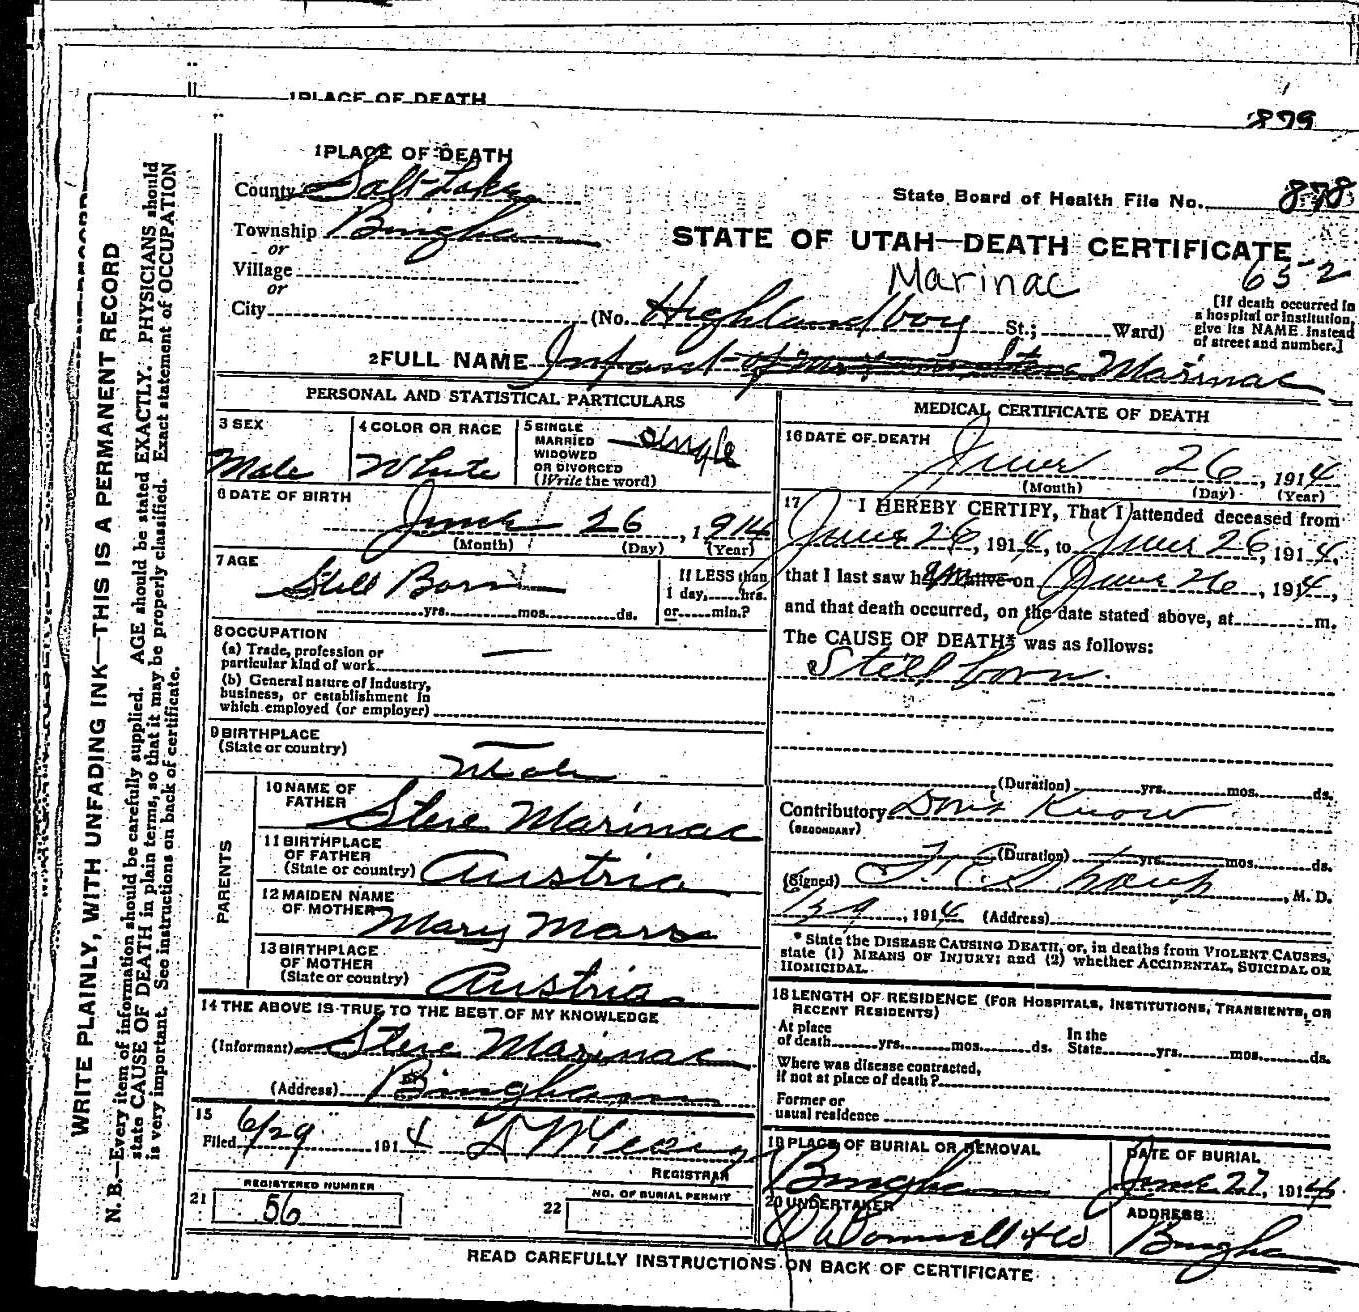 1 PLACE OF DEATH
879
1 PLACE OF DEATH
County Salt Lake
State Board of Health File No. 878
Township Bingham
or
STATE OF UTAH—DEATH CERTIFICATE
Village
or
Marinac
65-2
City
(No. Highland Boy St.; Ward)
[If death occurred in a hospital or institution, give its NAME instead of street and number.]
2 FULL NAME Infant of Steve Marinac
PERSONAL AND STATISTICAL PARTICULARS
3 SEX
Male
4 COLOR OR RACE
White
5 SINGLE
MARRIED
WIDOWED
OR DIVORCED
(Write the word)
single
6 DATE OF BIRTH
June 26, 1914
(Month) (Day) (Year)
7 AGE
Still Born
yrs. mos. ds.
If LESS than
1 day, hrs.
or min.?
8 OCCUPATION
(a) Trade, profession or
particular kind of work —
(b) General nature of Industry,
business, or establishment in
which employed (or employer)
9 BIRTHPLACE
(State or country)
Utah
PARENTS
10 NAME OF
FATHER
Steve Marinac
11 BIRTHPLACE
OF FATHER
(State or country)
Austria
12 MAIDEN NAME
OF MOTHER
Mary Mars
13 BIRTHPLACE
OF MOTHER
(State or country)
Austria
14 THE ABOVE IS TRUE TO THE BEST OF MY KNOWLEDGE
(Informant) Steve Marinac
(Address) Bingham
15
Filed 6/29 1914
REGISTRAR
21
REGISTERED NUMBER
56
22
NO. OF BURIAL PERMIT
MEDICAL CERTIFICATE OF DEATH
16 DATE OF DEATH
June 26, 1914
(Month) (Day) (Year)
17 I HEREBY CERTIFY, That I attended deceased from
June 26, 1914, to June 26, 1914,
that I last saw him alive on June 26, 1914,
and that death occurred, on the date stated above, at m.
The CAUSE OF DEATH* was as follows:
Still born.
(Duration) yrs. mos. ds.
Contributory Don't Know
(SECONDARY)
(Duration) yrs. mos. ds.
(Signed) , M. D.
, 1914 (Address)
* State the DISEASE CAUSING DEATH, or, in deaths from VIOLENT CAUSES,
state (1) MEANS OF INJURY; and (2) whether ACCIDENTAL, SUICIDAL OR
HOMICIDAL.
18 LENGTH OF RESIDENCE (FOR HOSPITALS, INSTITUTIONS, TRANSIENTS, OR
RECENT RESIDENTS)
At place
of death yrs. mos. ds.
In the
State yrs. mos. ds.
Where was disease contracted,
if not at place of death?
Former or
usual residence
19 PLACE OF BURIAL OR REMOVAL
Bingham
DATE OF BURIAL
June 27, 1914
20 UNDERTAKER
O'Donnell & Co
ADDRESS
Bingham
READ CAREFULLY INSTRUCTIONS ON BACK OF CERTIFICATE
WRITE PLAINLY, WITH UNFADING INK—THIS IS A PERMANENT RECORD
N. B.—Every item of information should be carefully supplied. AGE should be stated EXACTLY. PHYSICIANS should
state CAUSE OF DEATH in plain terms, so that it may be properly classified. Exact statement of OCCUPATION
is very important. See instructions on back of certificate.